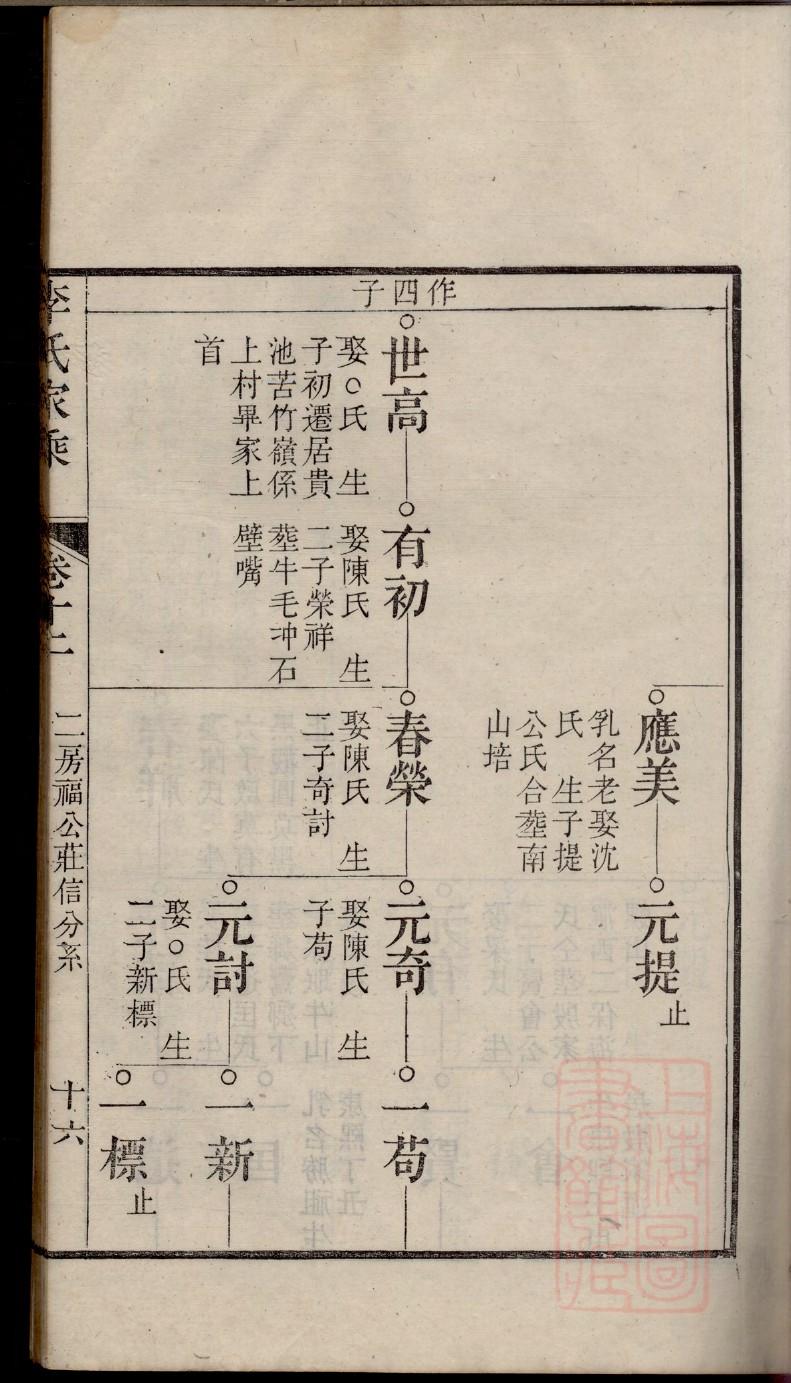 作四子
應美
乳名老娶沈
氏 生子提
公氏合塟南
山培
元提
止
世高
娶○氏 生
子初遷居貴
池苦竹嶺係
上村畢家上
首
有初
娶陳氏 生
二子榮祥
塟牛毛冲石
壁嘴
春榮
娶陳氏 生
二子奇討
元奇
娶陳氏 生
子苟
一苟
元討
娶○氏 生
二子新標
一新
一標
止
李氏家乘
卷十二
二房福公莊信分系
十六
上海圖
書館藏